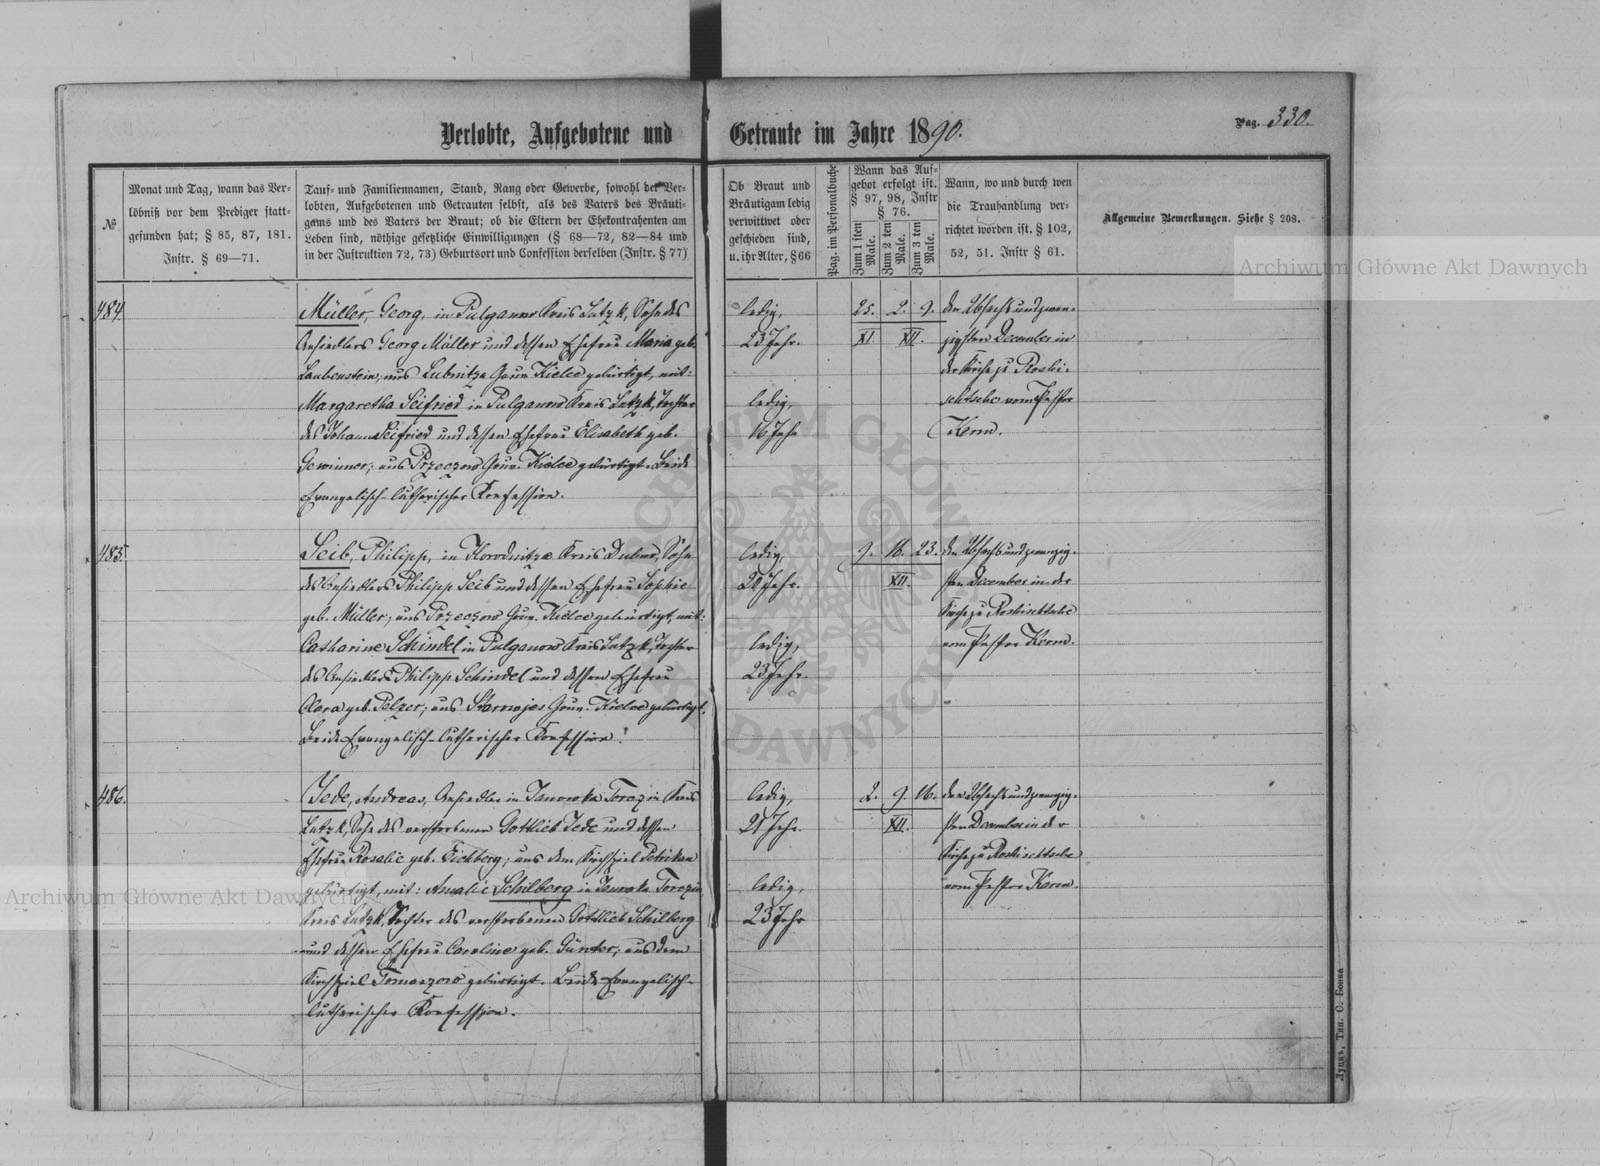 Verlobte, Aufgebotene und Getraute im Jahre 1890.
Pag. 330.
№
Monat und Tag, wann das Ver-
löbniß vor dem Prediger statt-
gefunden hat; § 85, 87, 181.
Instr. § 69—71.
Tauf- und Familiennamen, Stand, Rang oder Gewerbe, sowohl der Ver-
lobten, Aufgebotenen und Getrauten selbst, als des Vaters des Bräuti-
gams und des Vaters der Braut; ob die Eltern der Ehekontrahenten am
Leben sind, nöthige gesetzliche Einwilligungen (§ 68—72, 82—84 und
in der Justruktion 72, 73) Geburtsort und Confession derselben (Instr. § 77)
Ob Braut und
Bräutigam ledig
verwittwet oder
geschieden sind,
u. ihr Alter, § 66
Pag. im Personalbuche
Wann das Auf-
gebot erfolgt ist.
§ 97, 98, Instr
§ 76.
Zum 1 sten Male.
Zum 2 ten Male.
Zum 3 ten Male.
Wann, wo und durch wen
die Trauhandlung ver-
richtet worden ist. § 102,
52, 51. Instr § 61.
Allgemeine Bemerkungen. Siehe § 208.
484.
Müller, Georg, in Pulganow Kreis Lutzk, Sohn des
Ansiedlers Georg Müller und dessen Ehefrau Maria geb.
Laubenstein, aus Lubnitze Gouv. Kielce gebürtigt, mit:
Margaretha Seifried in Pulganow Kreis Lutzk, Tochter
des Johann Seifried und dessen Ehefrau Elisabeth geb.
Gewinner, aus Przeczow Gouv. Kielce gebürtigt. Beide
Evangelisch-lutherischer Konfession.
ledig,
23 Jahr.
ledig,
16 Jahr
25. 2. 9.
XI. XII.
den Achtundzwan-
zigsten December in
der Kirche zu Roschi-
schtsche vom Pastor
Kerm.
485.
Seib, Philipp, in Horodnitze Kreis Dubno, Sohn
des Ansiedlers Philipp Seib und dessen Ehefrau Sophie
geb. Müller, aus Przeczow Gouv. Kielce gebürtigt, mit:
Catharine Schindel in Pulganow Kreis Lutzk, Tochter
des Ansiedlers Philipp Schindel und dessen Ehefrau
Clara geb. Pelzer, aus Gouv. Kielce gebürtigt.
Beide Evangelisch-lutherischer Konfession.
ledig,
20 Jahr.
ledig,
23 Jahr.
9. 16. 23.
XII.
den Achtundzwanzig-
sten December in der
Kirche zu Roschischtsche
vom Pastor Kerm.
486.
Jede, Andreas, Ansiedler in Janowka Torczin Kreis
Lutzk, Sohn des verstorbenen Gottlieb Jede und dessen
Ehefrau Rosalie geb. Eichberg, aus dem Kirchspiel Petrikau
gebürtigt, mit: Amalie Schilberg in Janowka Torczin
Kreis Lutzk, Tochter des verstorbenen Gottlieb Schilberg
und dessen Ehefrau Caroline geb. Günter, aus dem
Kirchspiel Tomaszow gebürtigt. Beide Evangelisch-
lutherischer Konfession.
ledig,
21 Jahr.
ledig,
23 Jahr
2. 9. 16.
XII.
den Achtundzwanzig-
sten December in der
Kirche zu Roschischtsche
vom Pastor Kerm.
Луцкъ, Тип. С. Бокка
Archiwum Główne Akt Dawnych
Archiwum Główne Akt Dawnych
ARCHIWUM GŁÓWNE AKT DAWNYCH